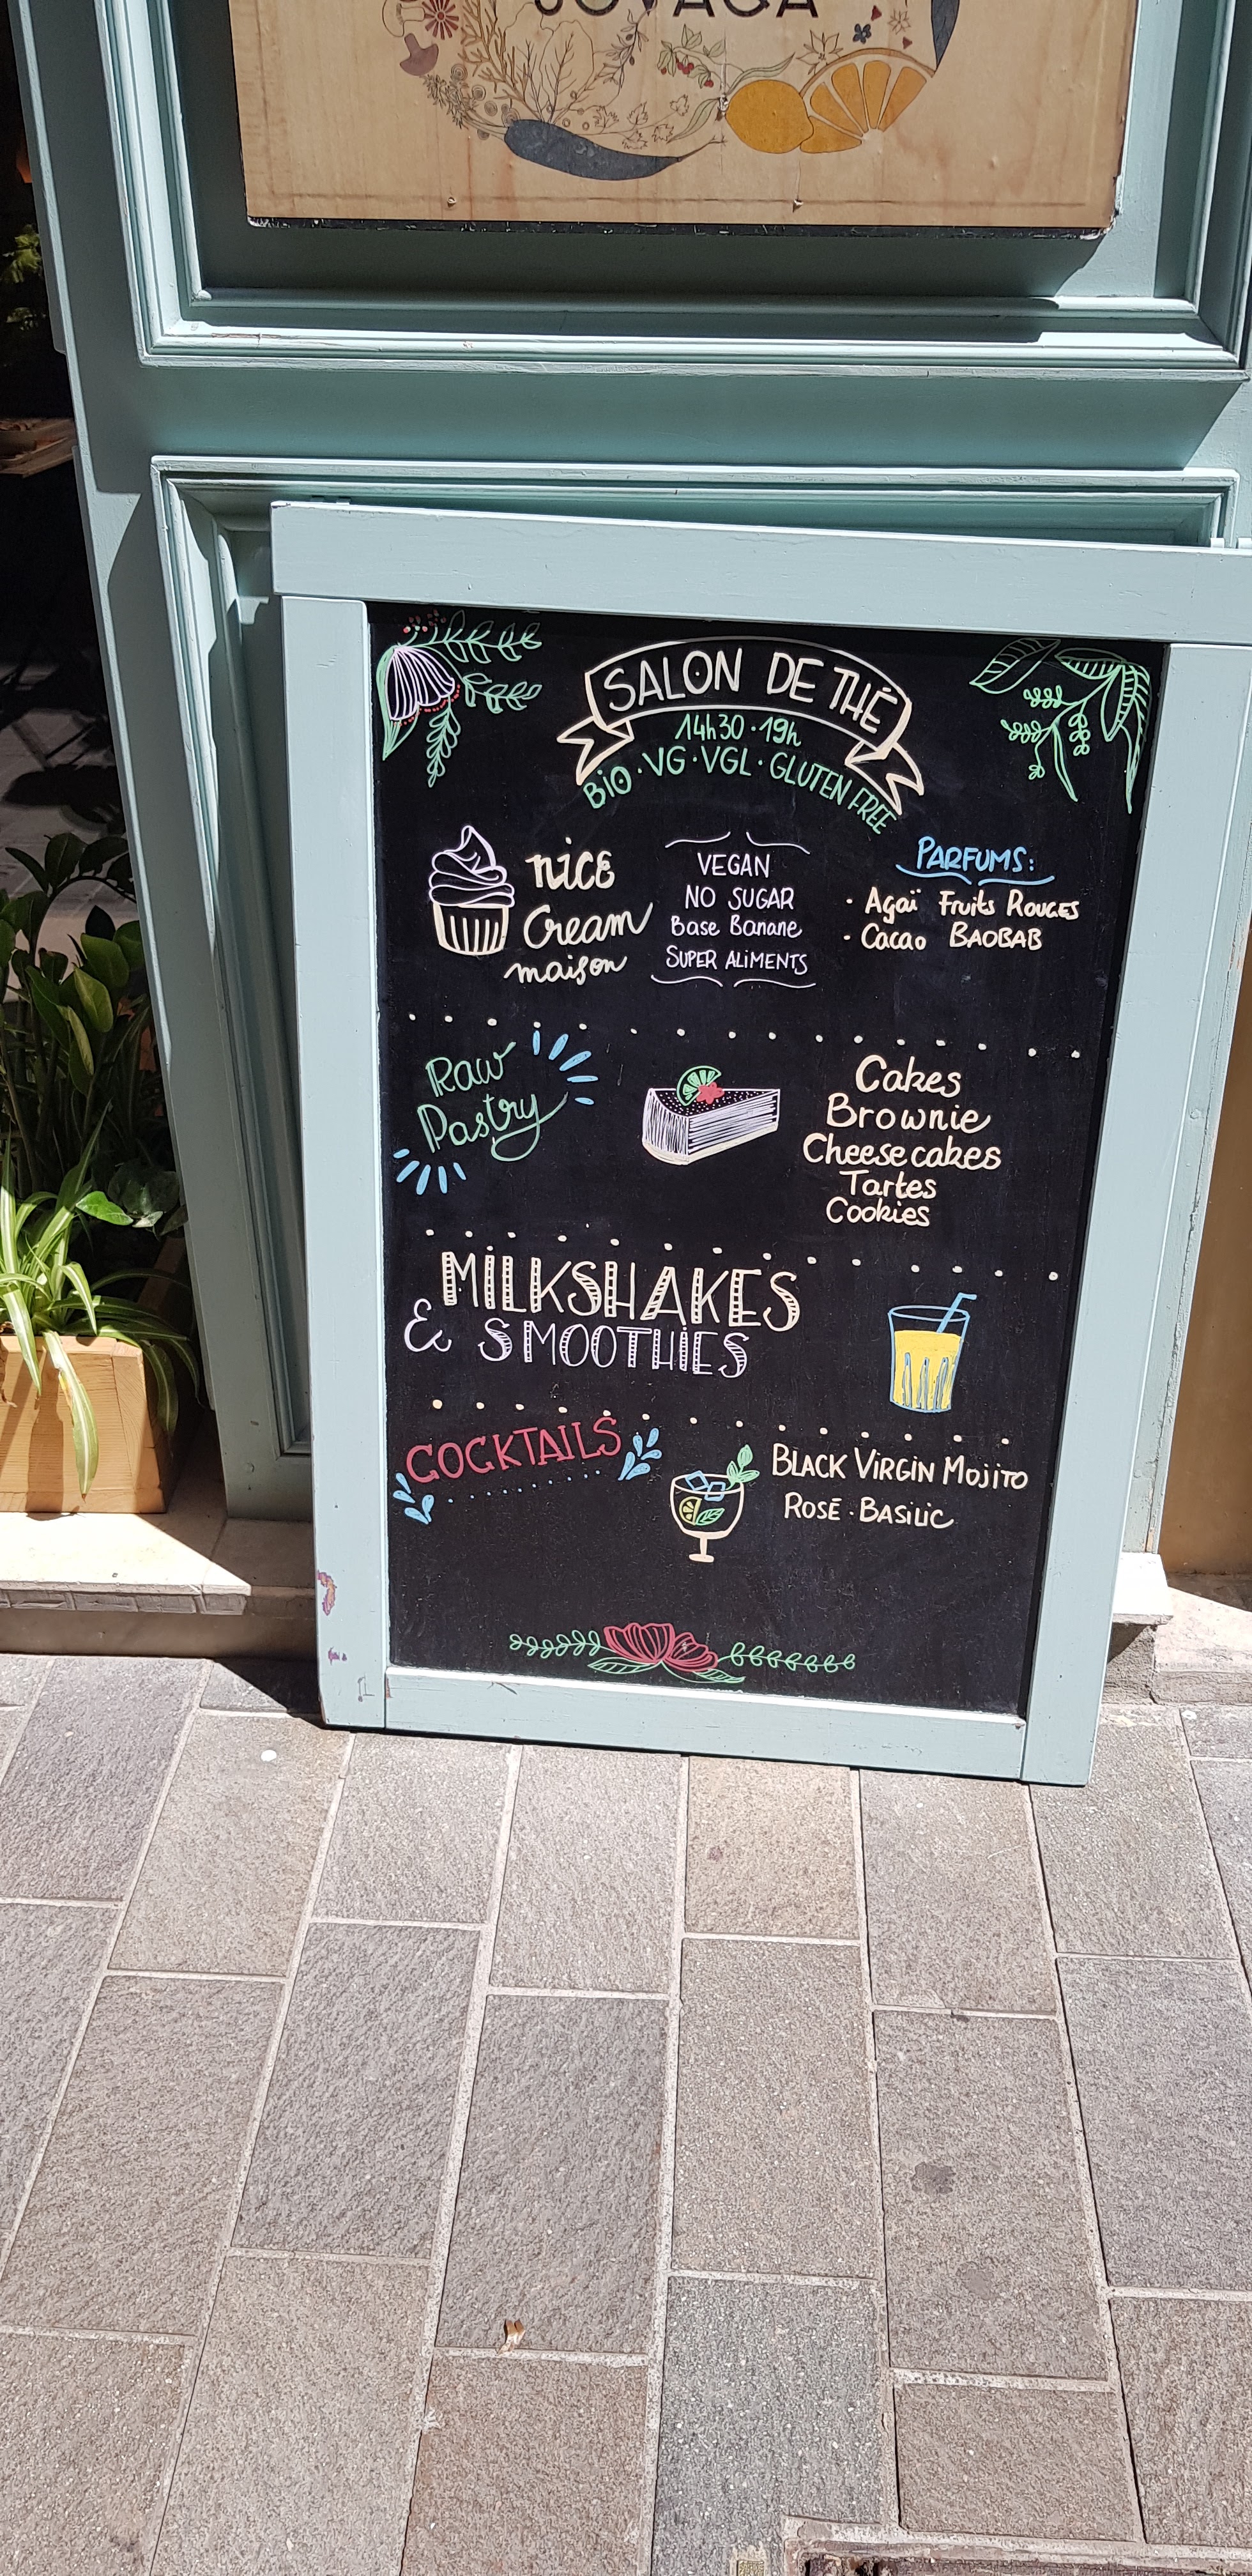 SALON DE THÉ
14h30 · 19h
BIO · VG · VGL · GLUTEN FREE
nice
Cream
maison
VEGAN
NO SUGAR
Base Banane
SUPER ALIMENTS
PARFUMS:
· Açaï Fruits Rouges
· Cacao BAOBAB
Raw
Pastry
Cakes
Brownie
Cheesecakes
Tartes
Cookies
MILKSHAKES
& SMOOTHIES
COCKTAILS
BLACK VIRGIN MOJITO
ROSE · BASILIC